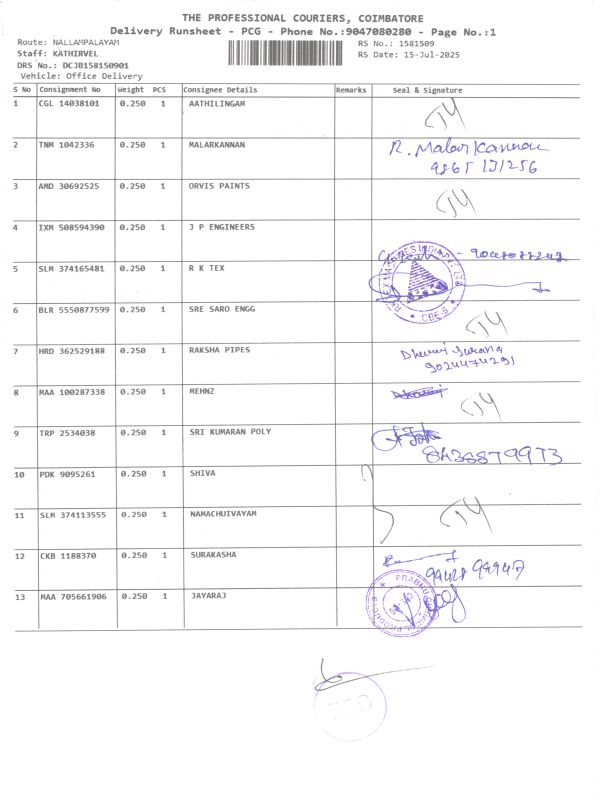 THE PROFESSIONAL COURIERS, COIMBATORE
Delivery Runsheet - PCG - Phone No.:9047080280 - Page No.:1
Route: NALLAMPALAYAM
RS No.: 1581509
Staff: KATHIRVEL
RS Date: 15-Jul-2025
DRS No.: DCJB158150901
Vehicle: Office Delivery
S No Consignment No Weight PCS Consignee Details Remarks Seal & Signature
1 CGL 14038101 0.250 1 AATHILINGAM
2 TNM 1042336 0.250 1 MALARKANNAN R. Malarkannan
3 AMD 30692525 0.250 1 ORVIS PAINTS
4 IXM 508594390 0.250 1 J P ENGINEERS
5 SLM 374165481 0.250 1 R K TEX
CBE-6
6 BLR 5550877599 0.250 1 SRE SARO ENGG
7 HRD 362529188 0.250 1 RAKSHA PIPES
9024474291
8 MAA 100287338 0.250 1 MEHNZ
9 TRP 2534038 0.250 1 SRI KUMARAN POLY
8438879973
10 PDK 9095261 0.250 1 SHIVA
11 SLM 374113555 0.250 1 NAMACHUIVAYAM
12 CKB 1188370 0.250 1 SURAKASHA
99428 98947
13 MAA 705661906 0.250 1 JAYARAJ
PRABHU
PCG